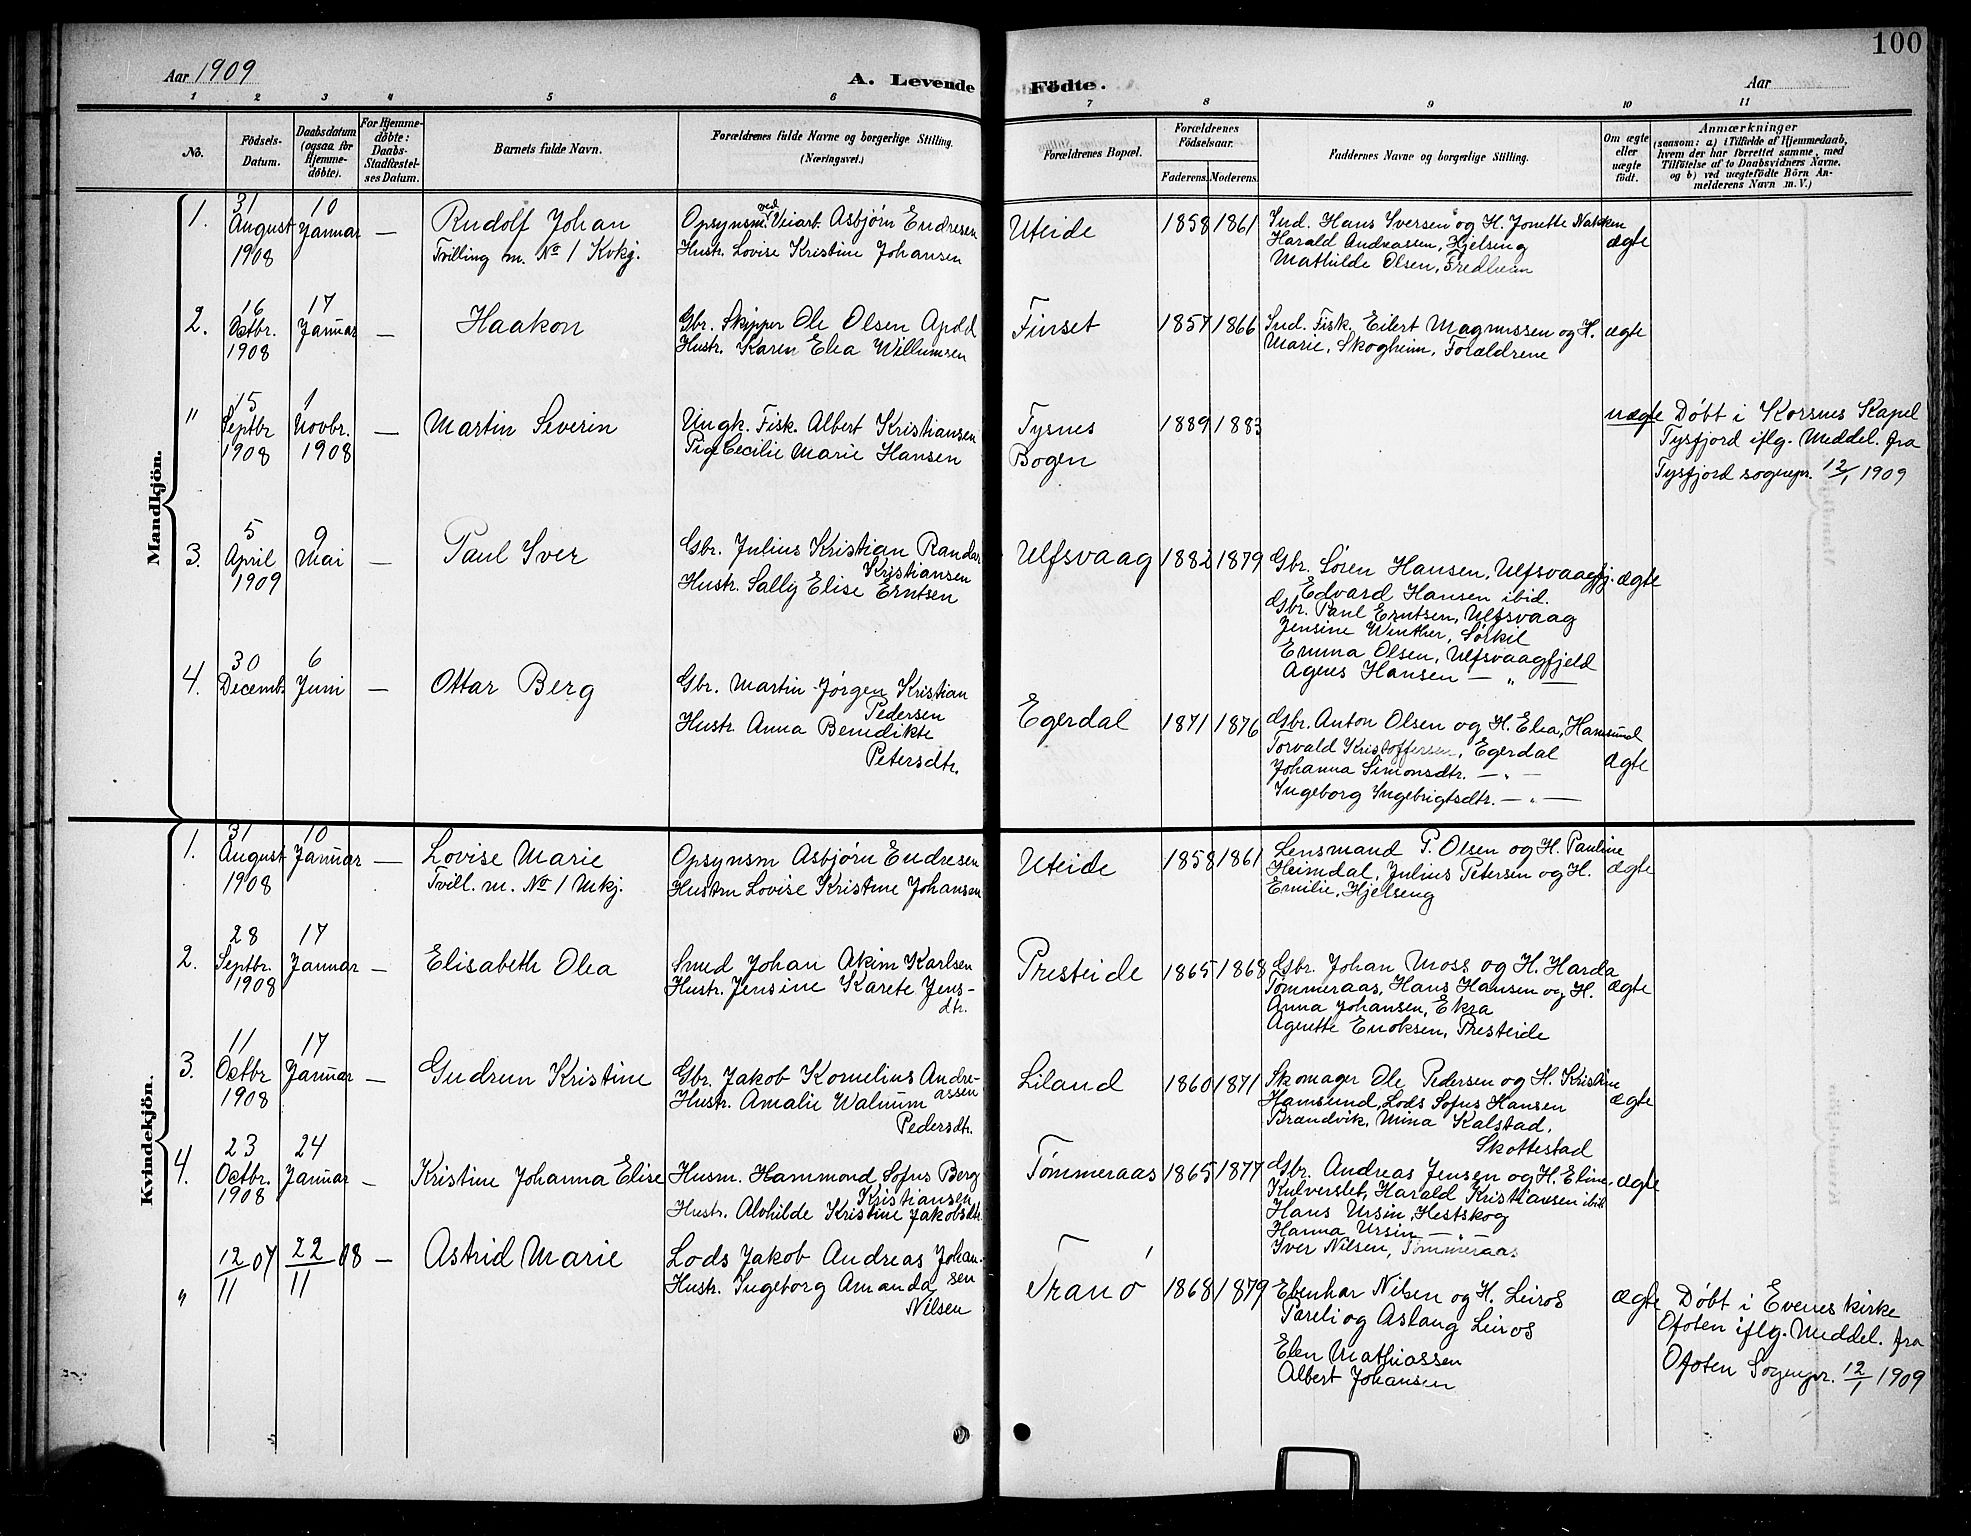 100
Aar 1909
A. Levende Födte.
Aar
1 2 3 4 5 6 7 8 9 10 11
No.
Födsels-Datum.
Daabsdatum (ogsaa for Hjemme-döbte).
For Hjemme-döbte: Daabs-Stadfæstel-ses Datum.
Barnets fulde Navn.
Forældrenes fulde Navne og borgerlige Stilling. (Næringsvei.)
Forældrenes Bopæl.
Forældrenes Födselsaar.
Faderens. Moderens.
Faddernes Navne og borgerlige Stilling.
Om ægte eller uægte födt.
Anmærkninger
(saasom: a) i Tilfælde af Hjemmedaab, hvem der har forrettet samme, med Tilföielse af to Daabsvidners Navne, og b) ved uægtefödte Börn An-melderens Navn m. V.)
Mandkjön.
1. 31 August 1908 10 Januar — Rudolf Johan
Tvilling m. No 1 Kvkj.
Opsynsm. ved Veiarb. Asbjørn Endresen
Hustr. Lovise Kristine Johansen
Uteide 1858 1861
Ind. Hans Iversen og H. Jonette Nakken
Harald Andreassen, Hjelseng
Mathilde Olsen, Fredheim
ægte
2. 16 Octbr. 1908 17 Januar — Haakon
Gbr. Skipper Ole Olsen Apold
Hustr. Karen Elea Willumsen
Finset 1857 1866
Ind. Fisk. Eilert Magnussen og H.
Marie, Skogheim, Forældrene
ægte
" 15 Septbr 1908 1 Novbr. 1908 — Martin Severin
Ungk. Fisk. Albert Kristiansen
Pige Cecilie Marie Hansen
Tysnes
Bogen
1889 1883
uægte
Døbt i Korsnes Kapel
Tysfjord iflg. Meddel. fra
Tysfjord sognepr. 12/1 1909
3. 5 April 1909 9 Mai — Paul Iver
Gbr. Julius Kristian Randar
Kristiansen
Hustr. Sally Elise Erntsen
Ulfsvaag 1882 1879
Gbr. Søren Hansen, Ulfsvaagfj.
Edvard Hansen ibid.
Gbr. Paul Erntsen, Ulfsvaag
Jensine Winther, Sørkil
Emma Olsen, Ulfsvaagfjeld
Agnes Hansen — " —
ægte
4. 30 Decemb 6 Juni — Ottar Berg
Gbr. Martin Jørgen Kristian
Pedersen
Hustr. Anna Benedikte
Petersdtr.
Egerdal 1871 1876
Gbr. Anton Olsen og H. Elea, Hamsund
Torvald Kristoffersen, Egerdal
Johanna Simonsdtr. — " —
Ingeborg Ingebrigtsdtr. — " —
ægte
Kvindekjön.
1. 31 August 1908 10 Januar — Lovise Marie
Tvill. m. No 1 Mkj.
Opsynsm Asbjørn Endresen
Hustru Lovise Kristine Johansen
Uteide 1858 1861
Lensmand P. Olsen og H. Pauline
Heimdal, Julius Petersen og H.
Emilie, Hjelseng
ægte
2. 28 Septbr. 1908 17 Januar — Elisabeth Olea
Smed Johan Akim Karlsen
Hustr. Jensine Karete Jens-
dtr.
Presteide 1865 1868
Gbr. Johan Moss og H. Harda
Tømmeraas, Hans Hansen og H.
Anna Johansen, Ekra
Agnette Enoksen, Presteide
ægte
3. 11 Octbr 1908 17 Januar — Gudrun Kristine
Gbr. Jakob Kornelius Andre-
assen
Hustr. Amalie Walnum
Pedersdtr.
Liland 1860 1871
Skomager Ole Pedersen og H. Kristine
Hamsund, Lods Sofus Hansen
Brandvik, Mina Kalstad,
Skottestad
ægte
4. 23 Octbr. 1908 24 Januar — Kristine Johanna Elise
Husm. Hammond Sofus Berg
Kristiansen
Hustr. Alvhilde Kristine Jakobsdtr.
Tømmeraas 1865 1877
Gbr. Andreas Jensen og H. Eline
Kulverslet, Harald Kristiansen ibid
Hans Ursin, Hestskog
Hanna Ursin — " —
Iver Nilsen, Tømmeraas
ægte
" 12/11 07 22/11 08 — Astrid Marie
Lods Jakob Andreas Johan-
sen
Hustr. Ingeborg Amanda
Nilsen
Tranø 1868 1879
Ebenhar Nilsen og H. Leiros
Pareli og Aslaug Leiros
Elen Mathiassen
Albert Johansen
ægte
Døbt i Evenes kirke
Ofoten iflg. Meddel. fra
Ofoten Sognepr. 12/1 1909